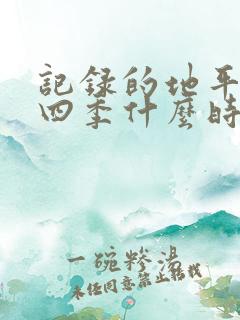 記錄的地平
四季什麼時
一碗糁湯
未经同意禁止转载